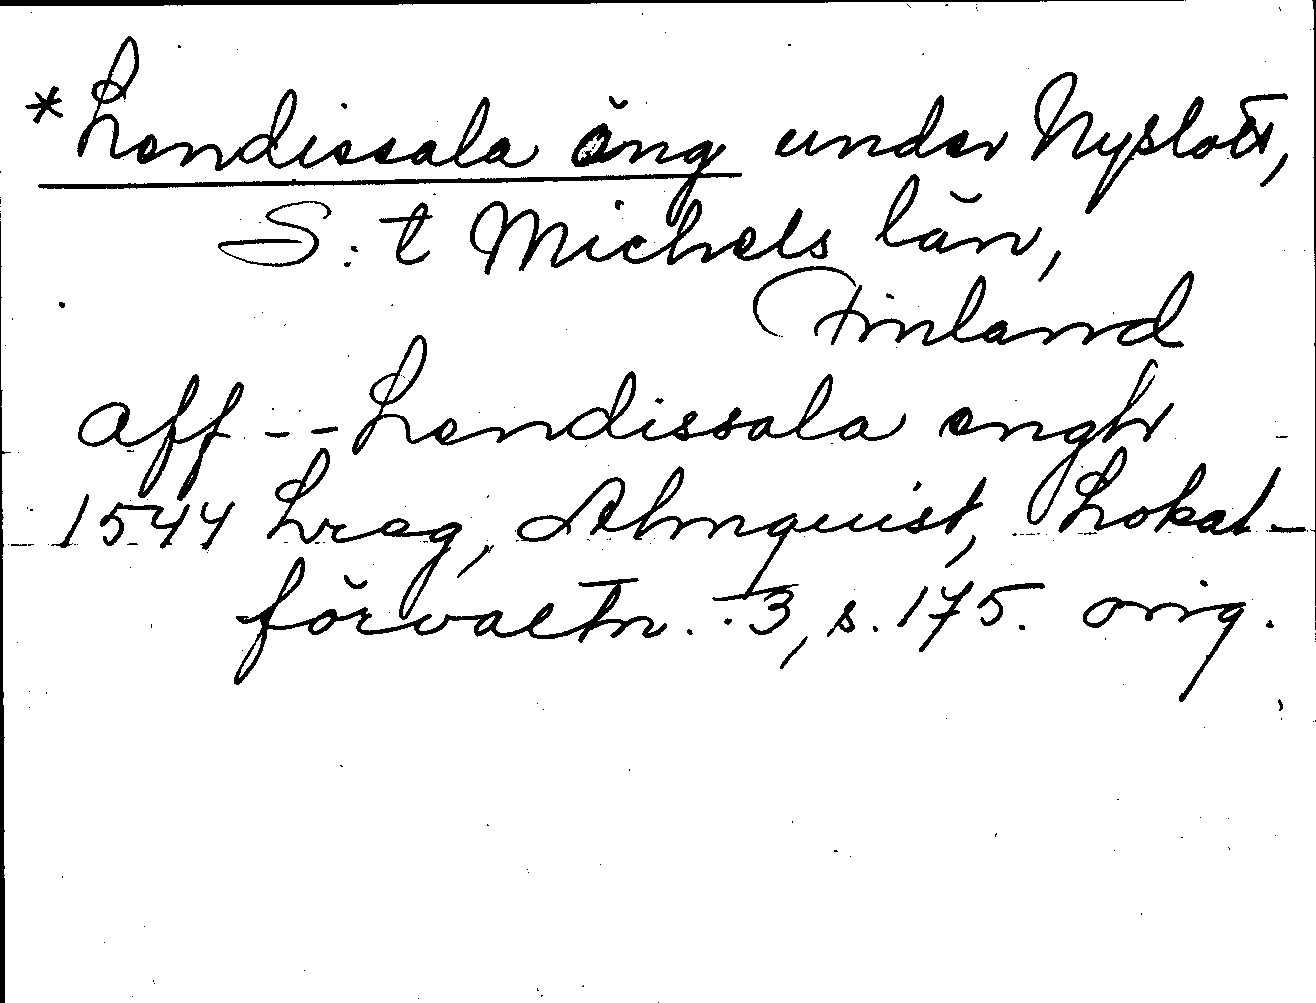 *Lendissala äng under Nyslott,
S:t Michels län,
Finland
aff -- Lendissala engh
1544 Lreg, Almquist, Lokal-
förvaltn. 3, s. 175. orig.